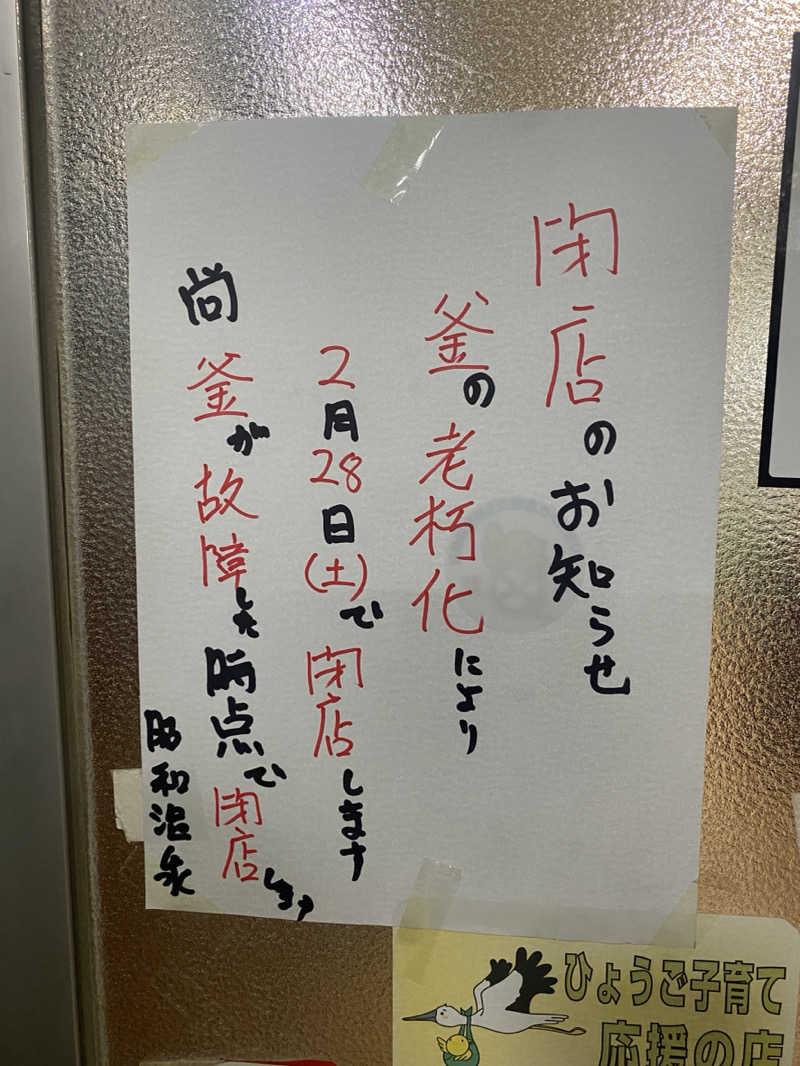 閉店のお知らせ
釜の老朽化により
2月28日(土)で閉店します
尚釜が故障した時点で閉店します
昭和温泉
ひょうご子育て
応援の店